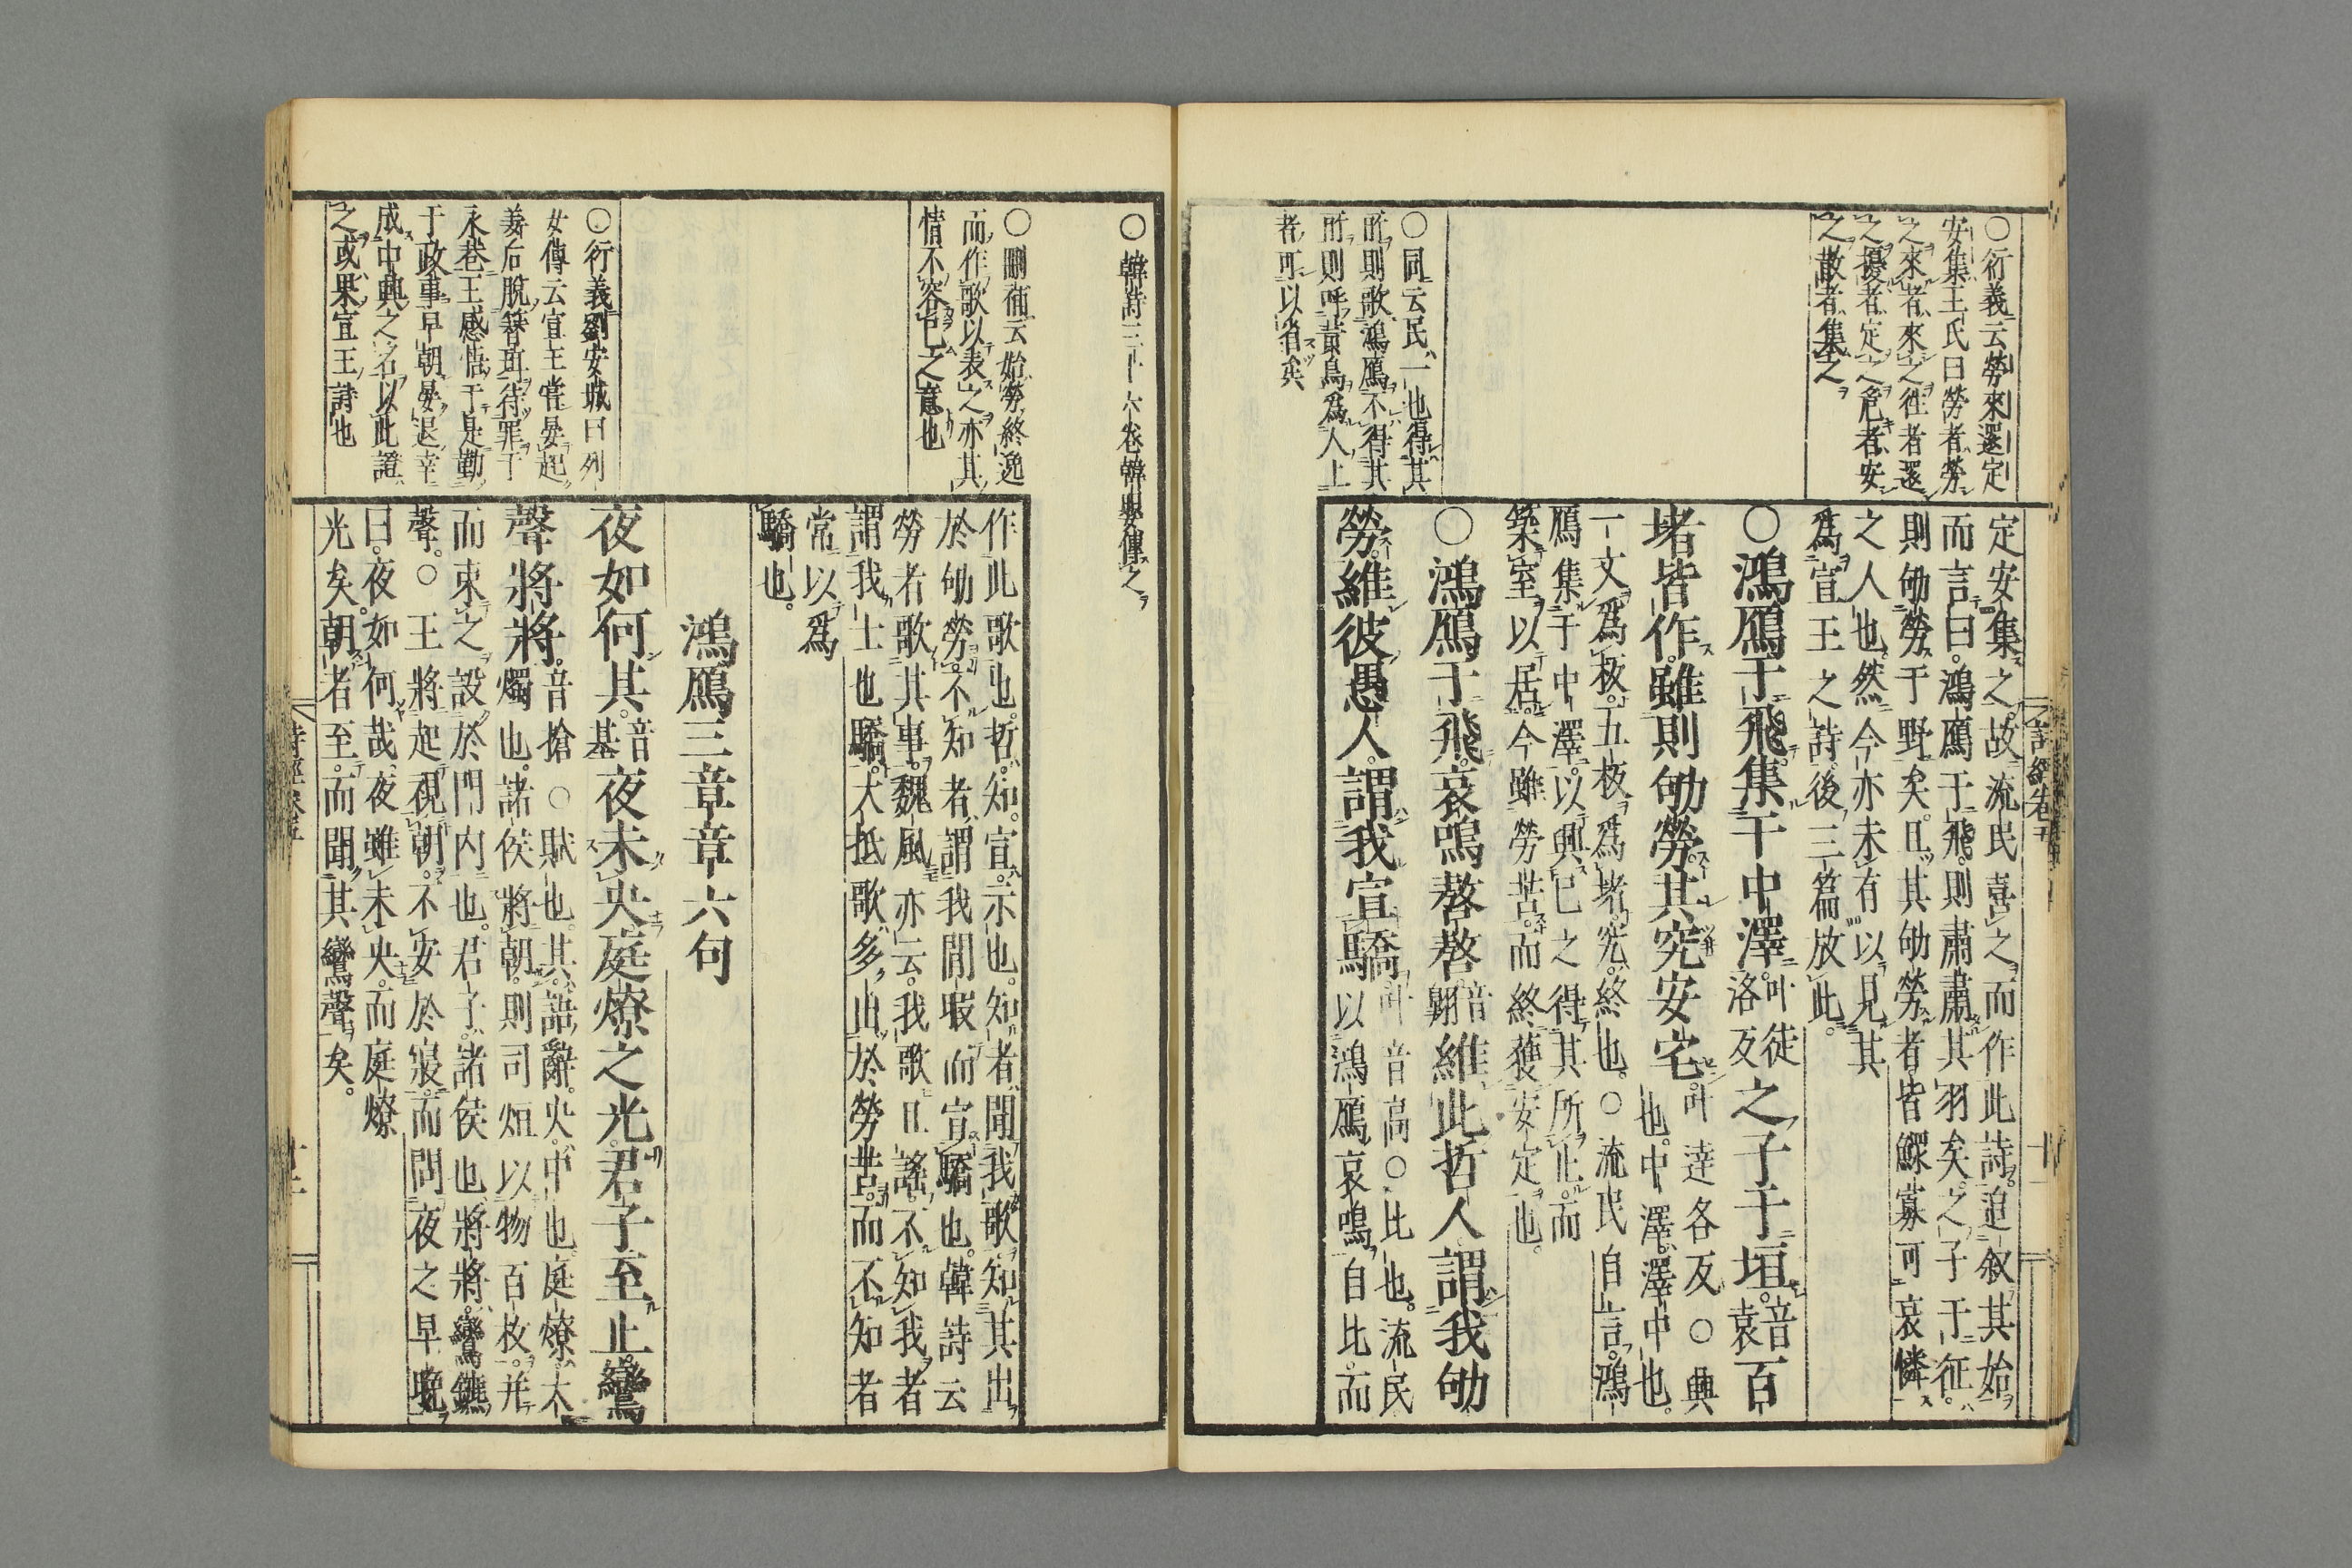 ○衍義云勞來還定
安集王氏曰勞者勞
之來者來之往者還
之擾者定之危者安
之散者集之
○同云民一也得其
所則歌鴻鴈不得其
所則呼黃鳥爲人上
者可以省矣
定安集之故流民喜之而作此詩追叙其始
而言曰鴻鴈于飛則肅肅其羽矣之子于征
則劬勞于野矣且其劬勞者皆鰥寡可哀憐
之人也然今亦未有以見其
爲宣王之詩後三篇放此
○鴻鴈于飛集于中澤叶徒洛反之子于垣音袁百
堵皆作雖則劬勞其究安宅叶達各反○興
也中澤澤中也
一丈爲板五板爲堵究終也○流民自言鴻
鴈集于中澤以興己之得其所止而
築室以居今雖勞苦而終獲安定也
○鴻鴈于飛哀鳴嗸嗸音翺維此哲人謂我劬
勞維彼愚人謂我宣驕叶音高○比也流民
以鴻鴈哀鳴自比而
詩經卷五
○韓詩三十六卷韓嬰傳之
○刪補云始勞終逸
而作歌以表之亦其
情不容已之意也
○衍義劉安城曰列
女傳云宣王嘗晏起
姜后脫簪珥待罪于
永巷王感悟于是勤
于政事早朝晏退幸
成中興之名以此證
之或果宣王詩也
作此歌也哲知宣示也知者聞我歌知其出
於劬勞不知者謂我閒暇而宣驕也韓詩云
勞者歌其事魏風亦云我歌且謠不知我者
謂我士也驕大抵歌多出於勞苦而不知者
常以爲
驕也
鴻鴈三章章六句
夜如何其音基夜未央庭燎之光君子至止鸞
聲將將音搶○賦也其語辭央中也庭燎大
燭也諸侯將朝則司烜以物百枚并
而束之設於門内也君子諸侯也將將鸞鑣
聲○王將起視朝不安於寢而問夜之早晚
曰夜如何哉夜雖未央而庭燎
光矣朝者至而聞其鸞聲矣
詩經卷五